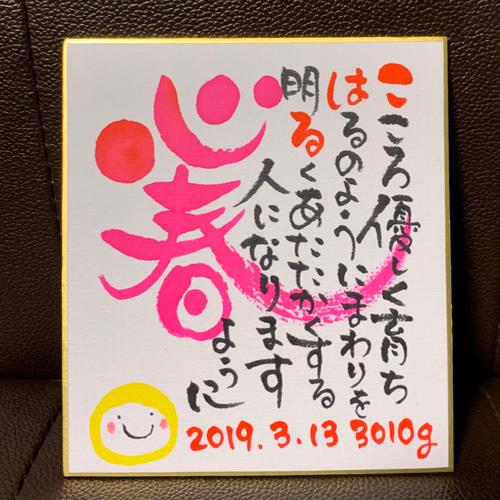 心春
こころ優しく育ち
はるのようにまわりを
明るくあたたかくする
人になります
ように
2019.3.13 3010g